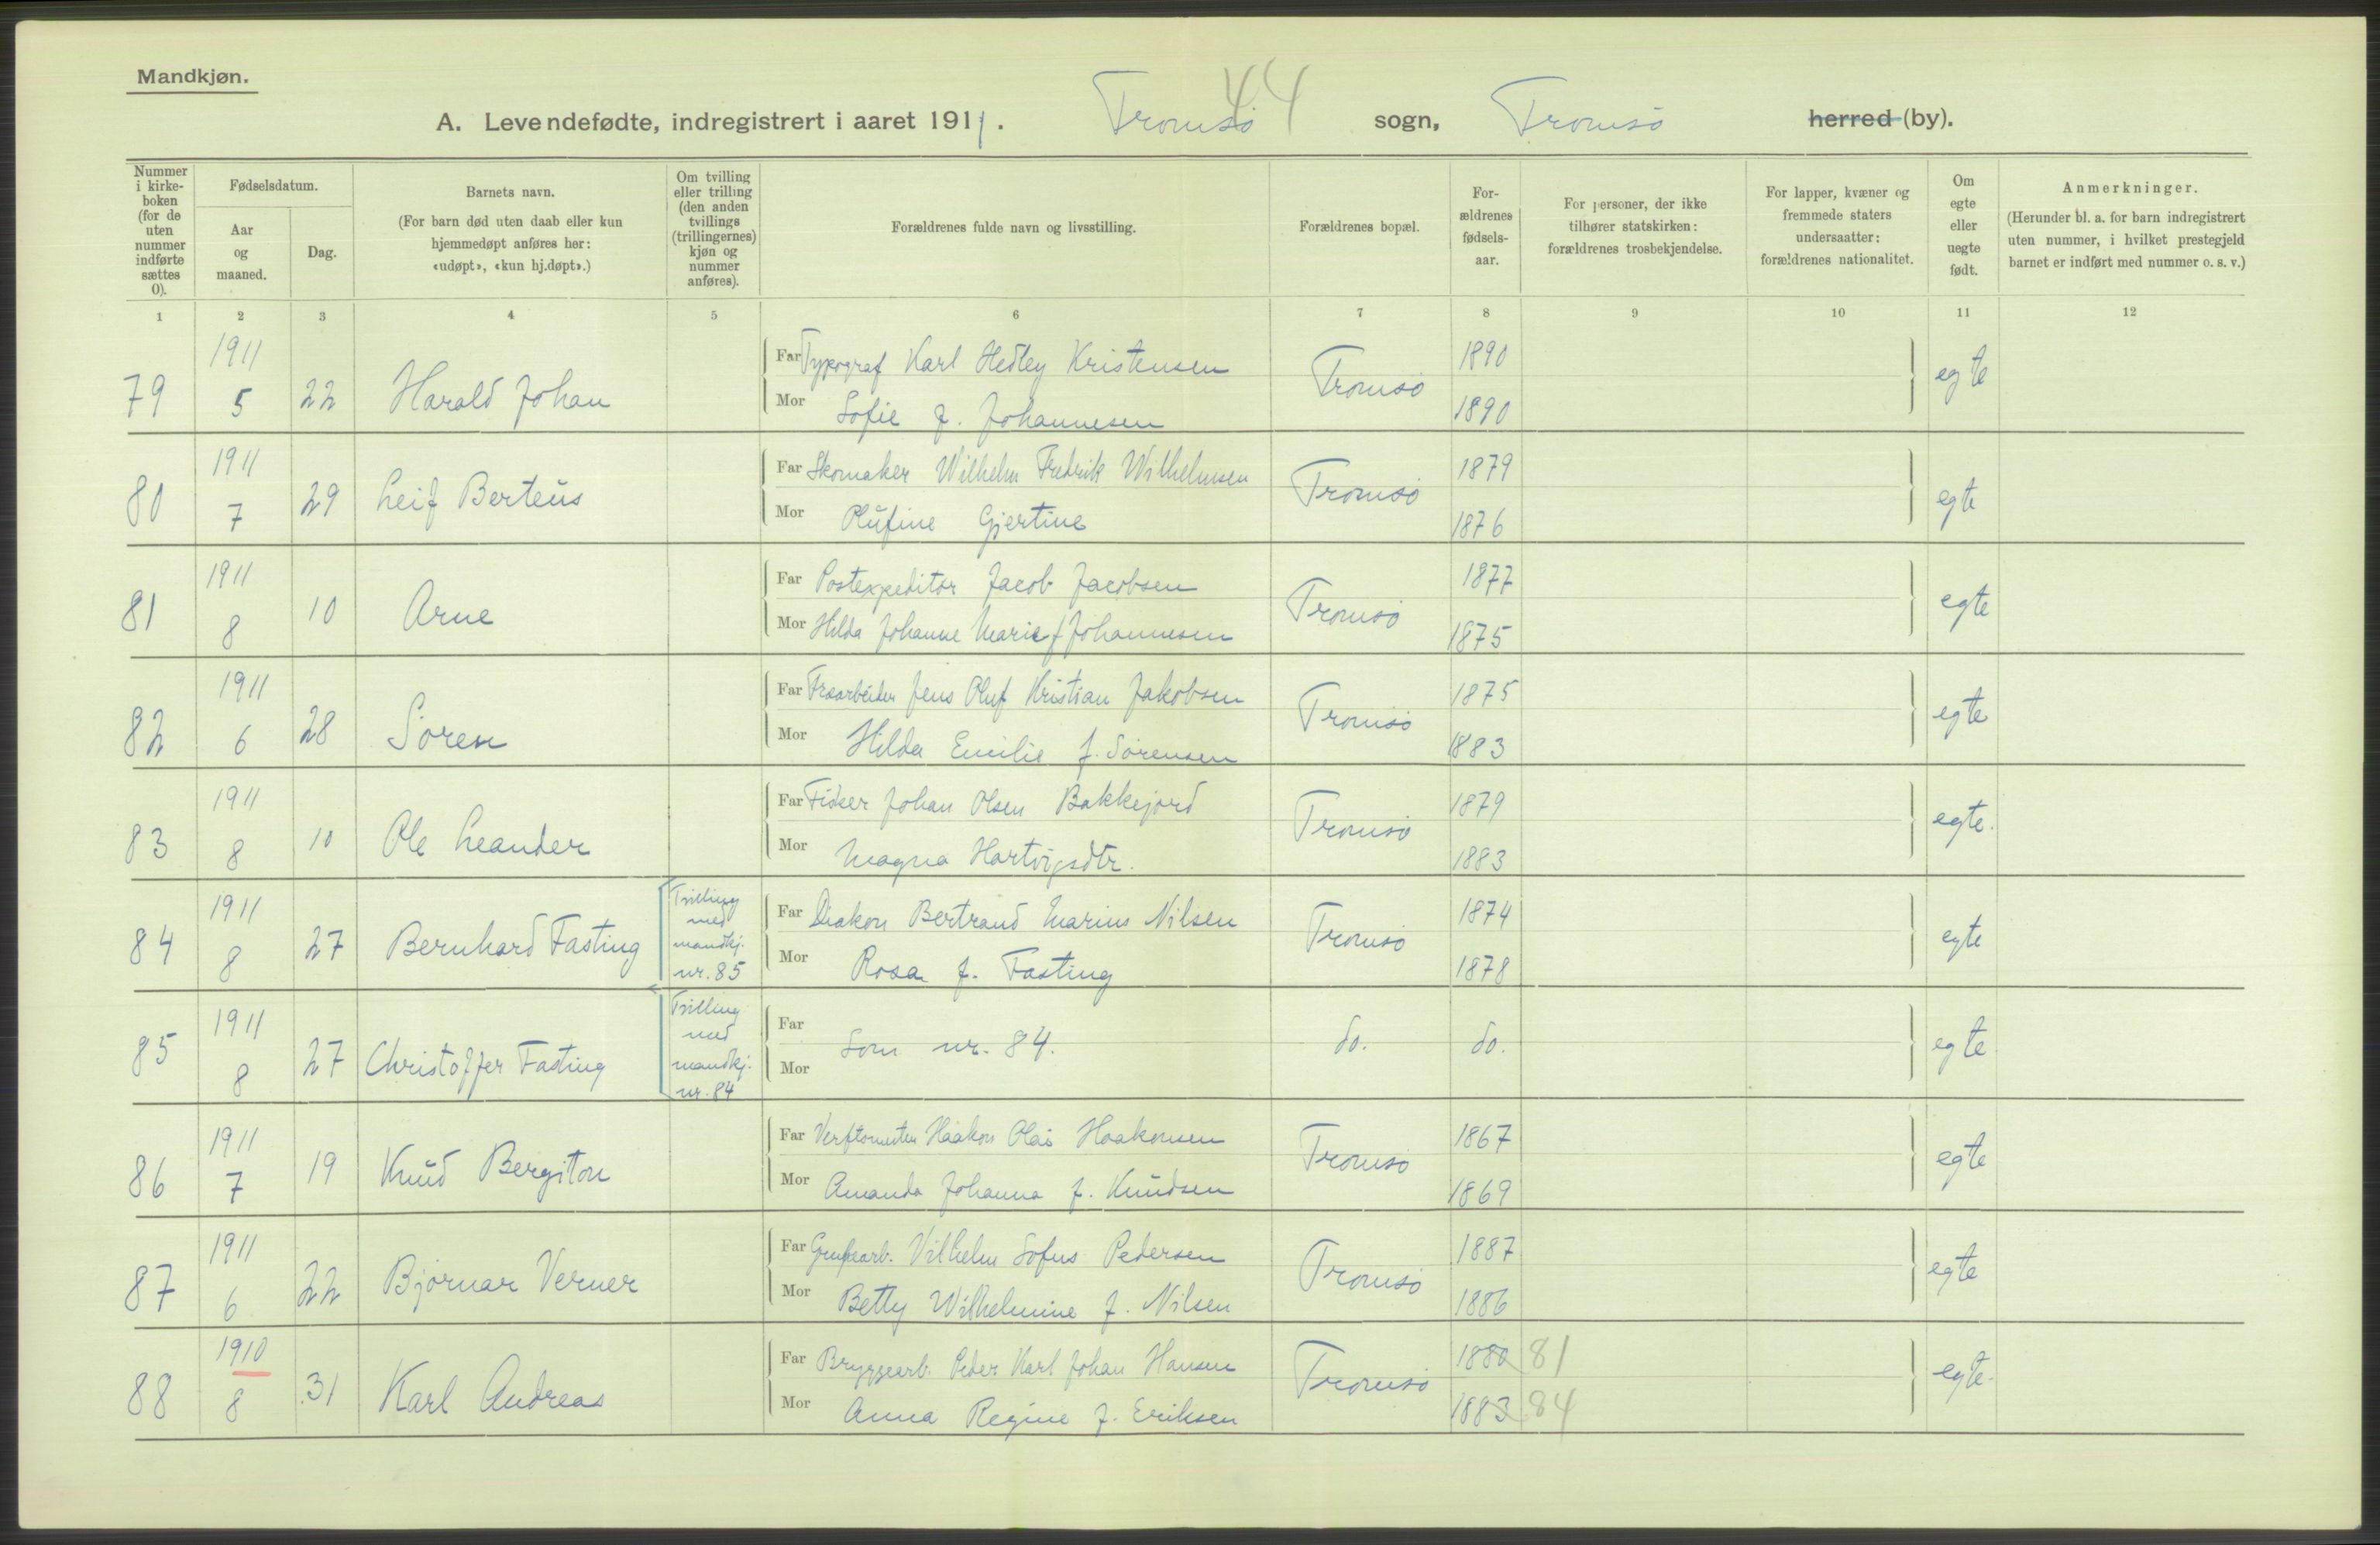 Mandkjøn.
44
A. Levendefødte, indregistrert i aaret 1911. Tromsø sogn, Tromsø herred (by).
Nummer i kirke-boken (for de uten nummer indførte sættes 0).
Fødselsdatum.
Aar og maaned.
Dag.
Barnets navn.
(For barn død uten daab eller kun hjemmedøpt anføres her: «udøpt», «kun hj.døpt».)
Om tvilling eller trilling (den anden tvillings (trillingernes) kjøn og nummer anføres).
Forældrenes fulde navn og livsstilling.
Forældrenes bopæl.
For-ældrenes fødsels-aar.
For personer, der ikke tilhører statskirken: forældrenes trosbekjendelse.
For lapper, kvæner og fremmede staters undersaatter: forældrenes nationalitet.
Om egte eller uegte født.
Anmerkninger.
(Herunder bl. a. for barn indregistrert uten nummer, i hvilket prestegjeld barnet er indført med nummer o. s. v.)
1 2 3 4 5 6 7 8 9 10 11 12
79 1911 5 22 Harald Johan Far Typograf Karl Hedley Kristensen Tromsø 1890 egte
Mor Sofie f. Johannesen 1890
80 1911 7 29 Leif Berteus Far Skomaker Wilhelm Fredrik Wilhelmsen Tromsø 1879 egte
Mor Olufine Gjertine 1876
81 1911 8 10 Arne Far Postexpeditør Jacob Jacobsen Tromsø 1877 egte
Mor Hilda Johanne Marie f Johannesen 1875
82 1911 6 28 Søren Far Jens Oluf Kristian Jakobsen Tromsø 1875 egte
Mor Hilda Emilie f. Sørensen 1883
83 1911 8 10 Ole Leander Far Fisker Johan Olsen Bakkejord Tromsø 1879 egte.
Mor Magna Hartvigsdtr. 1883
84 1911 8 27 Bernhard Fasting Trilling med mandkj. nr. 85 Far Diakon Bertrand Marius Nilsen Tromsø 1874 egte
Mor Rosa f. Fasting 1878
85 1911 8 27 Christoffer Fasting Trilling med mandkj. nr. 84 Far Mor Som nr. 84. do. do. egte
86 1911 7 19 Knud Bergiton Far Haakon Olai Haakonsen Tromsø 1867 egte
Mor Amanda Johanna f. Knudsen 1869
87 1911 6 22 Bjørnar Verner Far Grubearb. Vilhelm Sofus Pedersen Tromsø 1887 egte
Mor Betty Wilhelmine f. Nilsen 1886
88 1910 8 31 Karl Andreas Far Bryggearb. Peder Karl Johan Hansen Tromsø 1880 81 egte.
Mor Anna Regine f. Eriksen 1883 84